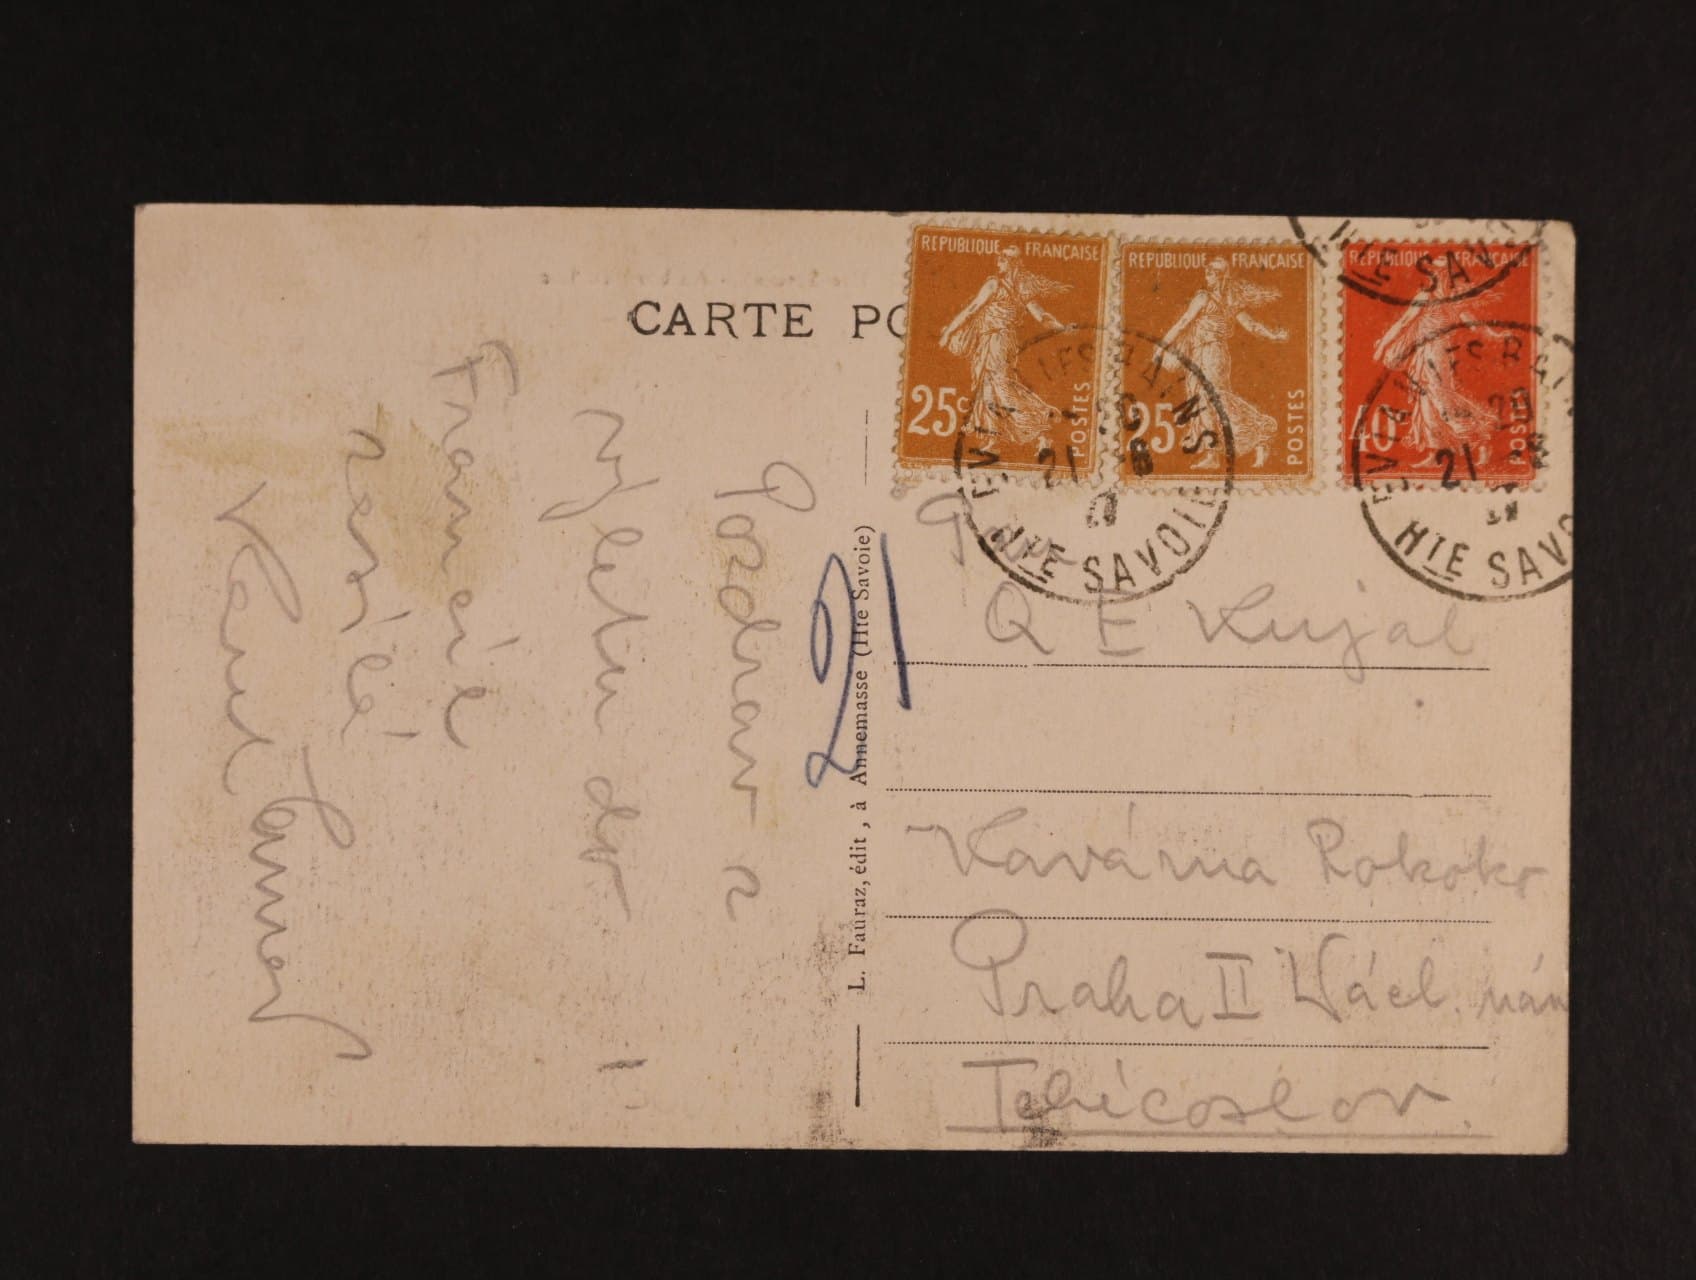 CARTE PO
REPUBLIQUE FRANÇAISE
25c
POSTES
REPUBLIQUE FRANÇAISE
25c
POSTES
REPUBLIQUE FRANÇAISE
10
POSTES
HTE SAVO
EVIAN LES BAINS
21
HTE SAVOIE
EVIAN LES BAI
21
HTE SAV
L. Fauraz, édit, à Annemasse (Hte Savoie)
Pozdrav z
výletu do
Francie
zasílá
Karel
Kujal
Kavárna Rokoko
Praha II Václ. nám
Tchécoslov.